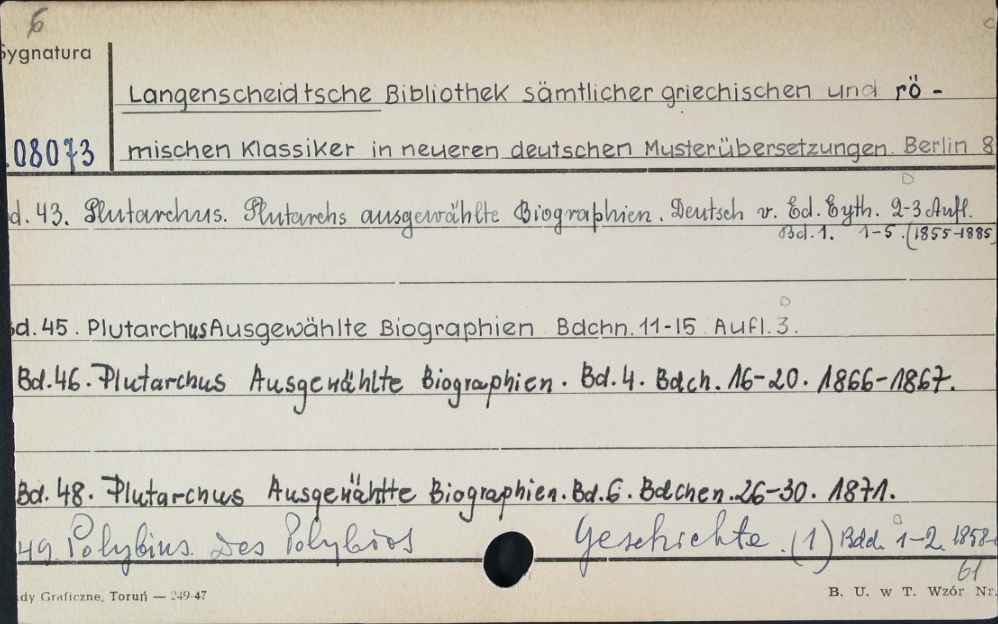 6
Sygnatura
Langenscheidtsche Bibliothek sämtlicher griechischen und rö-
08073 mischen Klassiker in neueren deutschen Musterübersetzungen. Berlin 8
d. 43. Plutarchus. Plutarchs ausgewählte Biographien. Deutsch v. Ed. Eyth. 2-3 Aufl.
Bd. 1. 1-5. (1855-1885
d. 45. Plutarchus Ausgewählte Biographien Bdchn. 11-15 Aufl. 3.
Bd. 46. Plutarchus Ausgewählte Biographien. Bd. 4. Bdch. 16-20. 1866-1867.
Bd. 48. Plutarchus Ausgewähltte Biographien. Bd. 6. Bdchen. 26-30. 1871.
49 Polybius. Des Polybios Geschichte. (1) Bdch. 1-2. 1858-
61
dy Graficzne, Toruń — 249-47 B. U. w T. Wzór Nr.